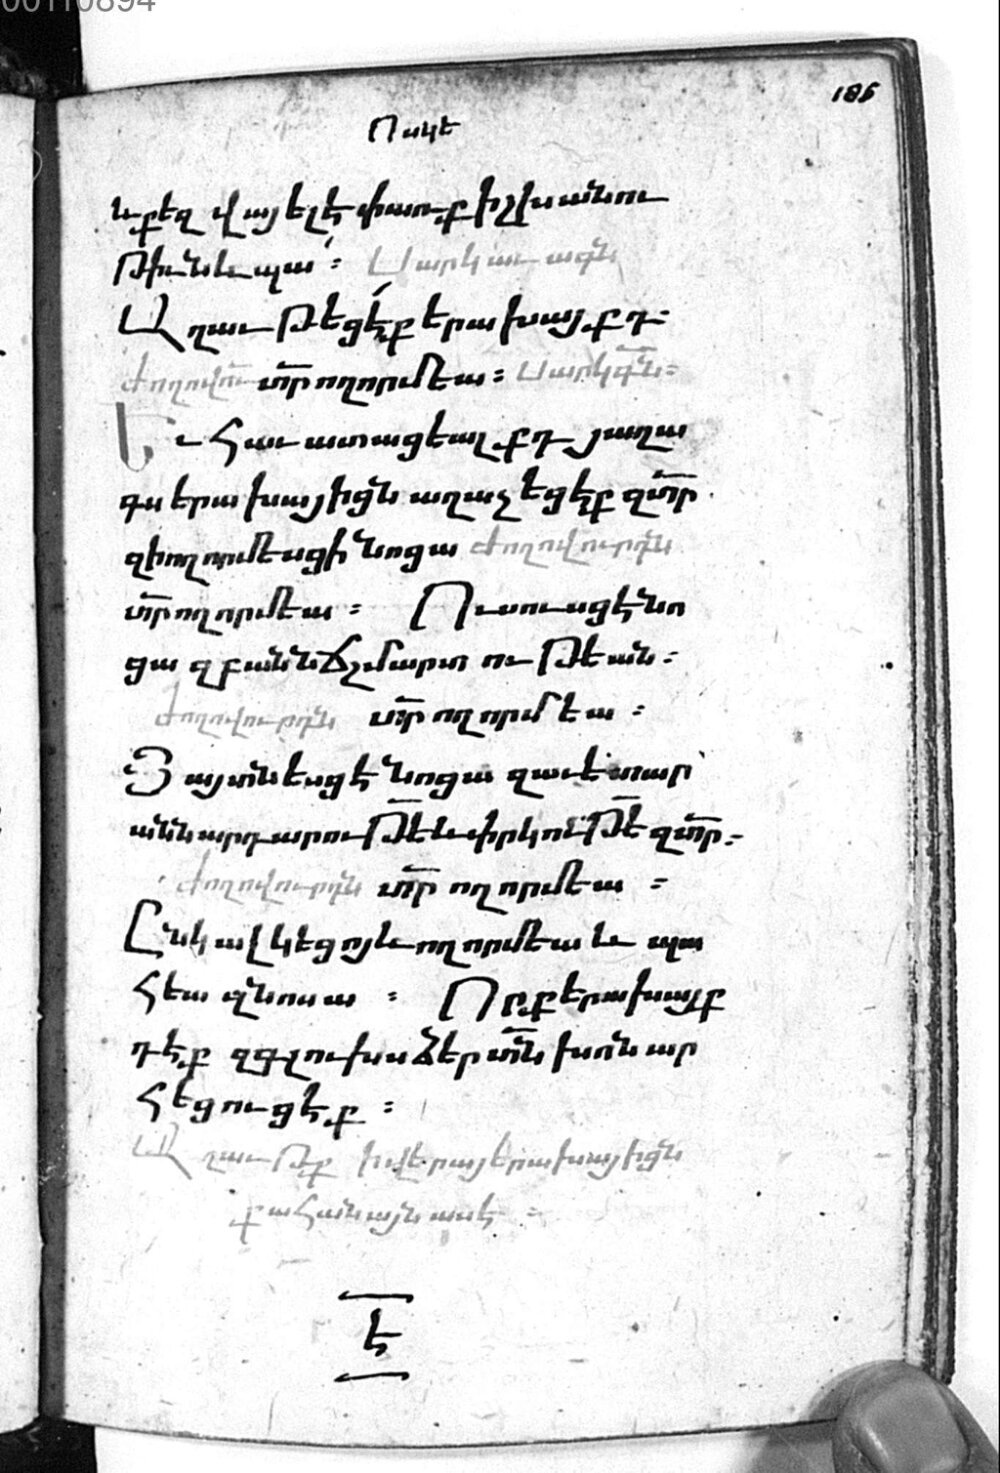 00110894
186
Ոսկե
և քեզ վայելէ փառք իշխանու
թիւն և պա՛ ։ Սարկաւագն
Աղաւթեցէ՛ք երախայքդ ։
ժողովու տր ողորմեա ։ Սարկգն ։
Եւ հաւատացեալքդ յաղա
գս երախայիցն աղաչեցէք զտր
զի ողորմեսցի նոցա ժողովուրդն
տր ողորմեա ։ Ուսուսցէ նո
ցա զբանն ճշմարտութեան ։
ժողովուրդն տր ողորմեա ։
Յայտնեսցէ նոցա զաւետար
անն արդարութե և փրկութե զտր ։
ժողովուրդն տր ողորմեա ։
Ընկալ կեցո և ողորմեա և պա
հեա զնոսա ։ Որք երախայք
դ էք զգլուխս ձեր տն խոնար
հեցուցէք ։
Աղաւթք ի վերայ երախայիցն
քահանայն ասէ ։
Է